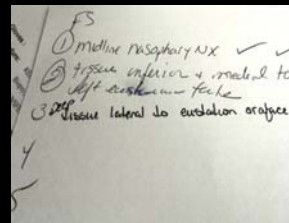 FS
① midline nasopharynx ✓ ✓
② tissue inferior + medial to
left tube
3 deep tissue lateral to eustation oraface
4
5